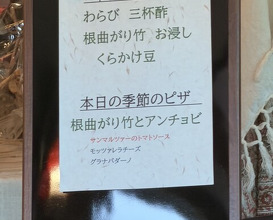 わらび 三杯酢
根曲がり竹 お浸し
くらかけ豆
本日の季節のピザ
根曲がり竹とアンチョビ
サンマルツァーのトマトソース
モッツァレラチーズ
グラナパダーノ